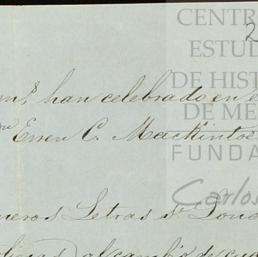 CENTR
ESTUD
DE HIST
DE ME
FUNDA
Carlos
2
han celebrado en e
Eween C. Mackintos
neros Letras st Lond
al cambio de cua